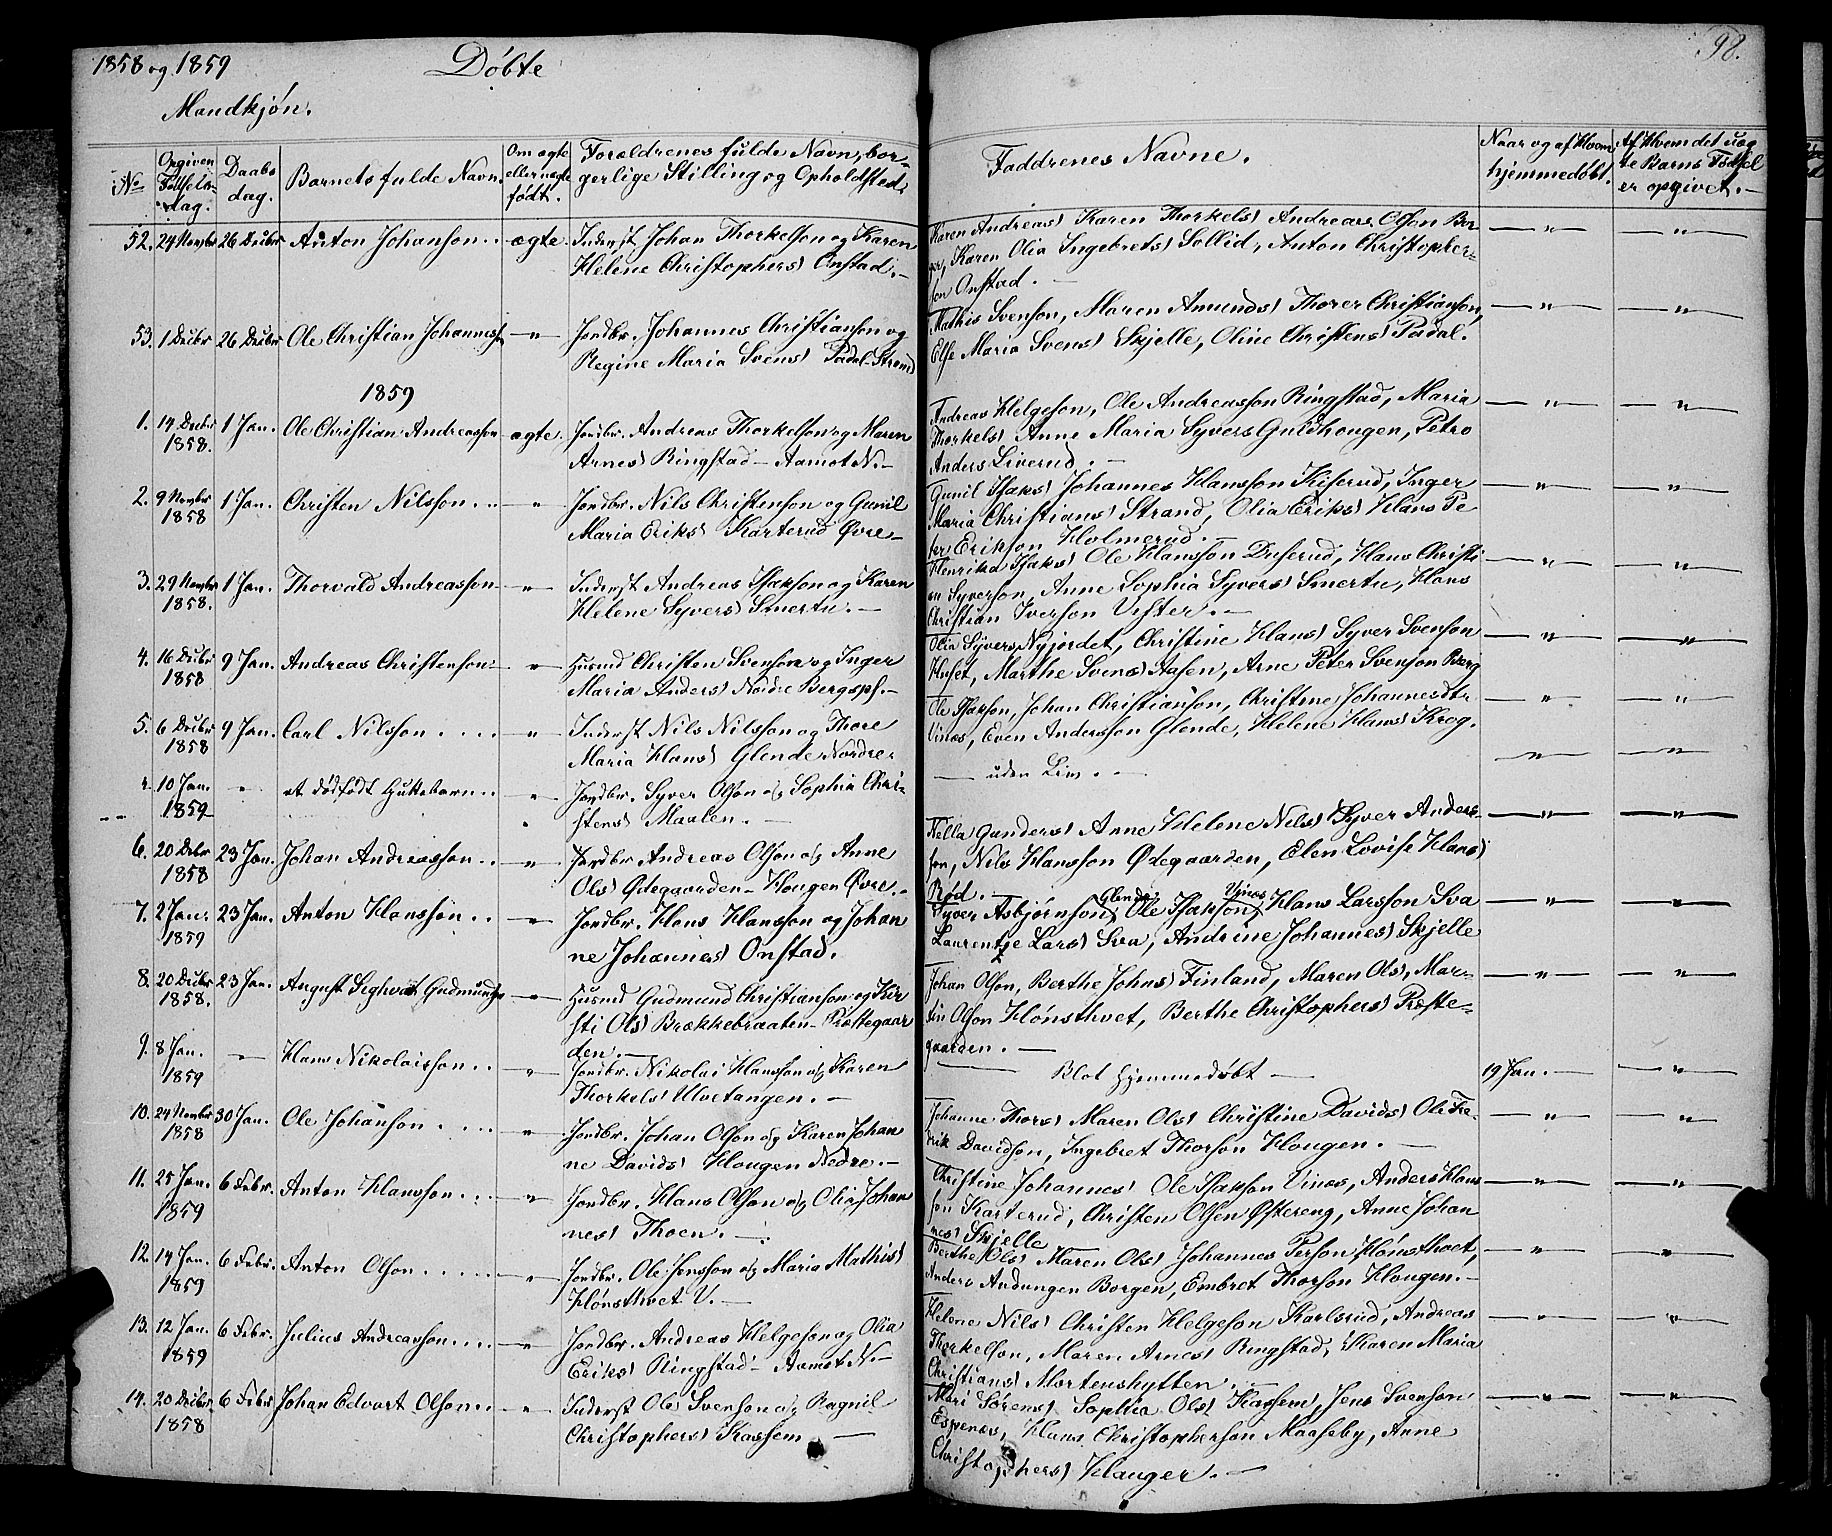 1858 og 1859 Døbte 98.
Mandkjøn.
No Opgiven Fødselsdag. Daabsdag. Barnets fulde Navn. Om ægte eller uægte født. Forældrenes fulde Navn, borgerlige Stilling og Opholdsted. Faddrenes Navne. Naar og af Hvem hjemmedøbt. Af Hvem det uægte Barns Fødsel er opgivet.
52. 24 Novbr 26 Decbr Anton Johanson ægte. Inderst Johan Thorkelson og Karen
Helene Christophers) Onstad.
Karen Andreas) Karen Thorkels) Andreas Olson Ber-
ger, Karen Olia Ingebrets) Sollid, Anton Christopher-
son Onstad.
53. 1 Decbr 26 Decbr Ole Christian Johanness. — " — Jordbr. Johannes Christianson og
Regine Maria Svens) Padal-Strand
Mathis Svenson, Maren Amunds) Thorer Christianson,
Else Maria Svens) Skjelle, Oline Christens) Padal.
1859
1. 14 Decbr 1858. 1 Jan. Ole Christian Andreasson ægte. Jordbr. Andreas Thorkelson og Maren
Arnes) Ringstad - Aamot N.
Andreas Helgeson, Ole Andreasson Ringstad, Maria
Thorkels) Anne Maria Syvers Guldhougen, Petro
Anders Liverud.
2. 9 Novbr 1858 1 Jan. Christen Nilsson — " — Jordbr. Nils Christenson og Gunil
Maria Eriks) Karterud Øvre
Gunil Isaks) Johannes Hansson Kiserud, Inger
Maria Christians) Strand, Olia Eriks) Hans Pe-
ter Erikson Holmerud.
3. 29 Novbr 1858. 1 Jan. Thorvald Andreasson — " — Inderst Andreas Isakson og Karen
Helene Syvers) Smertu.
Henrika Isaks) Ole Hansson Duserud, Hans Christi
an Syverson, Anne Sophia Syvers) Smertu, Hans
Christian Iverson Vister.
4. 16 Decbr 1858 9 Jan. Andreas Christenson " Husmd Christen Svenson og Inger
Maria Anders) Nordre Bergsps.
Olia Syvers Nyjordet, Christine Hans) Syver Svenson
Huset, Marthe Svens) Aasen, Arne Peter Svenson Berg
5. 6 Decbr 1858 9 Jan. Carl Nilsson " Inderst Nils Nilsson og Thore
Maria Hans) Glende Nordre
Ole Isakson, Johan Christianson, Christine Johannesdtr
Vinæs, Even Andersson Glende, Helene Hans) Krog.
" 10 Jan. 1859 " et dødfødt Guttebarn " Jordbr. Syver Olson og Sophia Chri-
stens) Maalen.
— uden Liv. —
6. 20 Debr 1858 23 Jan. Johan Andreasson " Jordbr. Andreas Olson og Anne
Ols) Ødegaarden - Hougen Øvre.
Hella Gunders) Anne Helene Nils) Syver Anders-
son, Nils Hansson Ødegaarden, Elen Lovise Hans)
Rød.
7. 2 Jan. 1859 23 Jan. Anton Hansson " Jordbr. Hans Hansson og Johan
ne Johannes) Onstad.
Syver Asbjørnson Glende, Ole Isakson Vinæs, Hans Larsson Sva
Laurentse Lars) Sva, Andrine Johannes) Skjelle
8. 20 Decbr 1858. 23 Jan. August Sighvat Gudmunds. — " — Husmd Gudmund Christianson og Kir
sti Ols) Brækkebraaten - Præstegaar
den.
Johan Olson, Berthe Johns) Finland, Maren Ols, Mar-
tin Olson Hønsthvet, Berthe Christophers) Præste-
gaarden.
9. 8 Jan. 1859 — " — Hans Nikolaisson " Jordbr. Nikolai Hansson og Karen
Thorkels) Ulvetangen.
Blot hjemmedøbt — 19 Jan.
10. 24 Novbr 1858 30 Jan. Ole Johanson " Jordbr. Johan Olson og Karen Johan
ne Davids) Hougen Nedre.
Johanne Thors) Maren Ols) Christine Davids) Ole Fre-
derik Davidson, Ingebret Thorson Hougen.
11. 25 Jan. 1859 6 Febr. Anton Hansson " Jordbr. Hans Olson og Olia Johan
nes) Thoen.
Christine Johannes) Ole Isakson Vinæs, Anders Hans
son Karterud, Christen Olsen Østereng, Anne Johan
nes) Skjelle
12. 14 Jan. 1859 6 Febr. Anton Olson — " — Jordbr. Ole Jensson og Maria Mathis)
Hønsthvet V.
Berthe Ols) Maren Ols) Johannes Person Hønsthvet,
Anders Andungen Borgen, Embret Thorson Hougen.
13. 12 Jan. 1859 6 Febr. Julius Andreasson — " — Jordbr. Andreas Helgeson og Olia
Eriks) Ringstad - Aamot N.
Helene Nils) Christen Helgeson Karlsrud, Andreas
Thorkelson, Maren Arnes) Ringstad, Karen Maria
Christians) Mortenshytten.
14. 20 Decbr 1858 6 Febr Johan Edvart Olson " Inderst Ole Svenson og Ragnil
Christophers) Kassem
Mari Sørens) Sophia Ols) Kassem, Jens Svenson
Espenes, Hans Christopherson Maaseby, Anne
Christophers) Hauger.